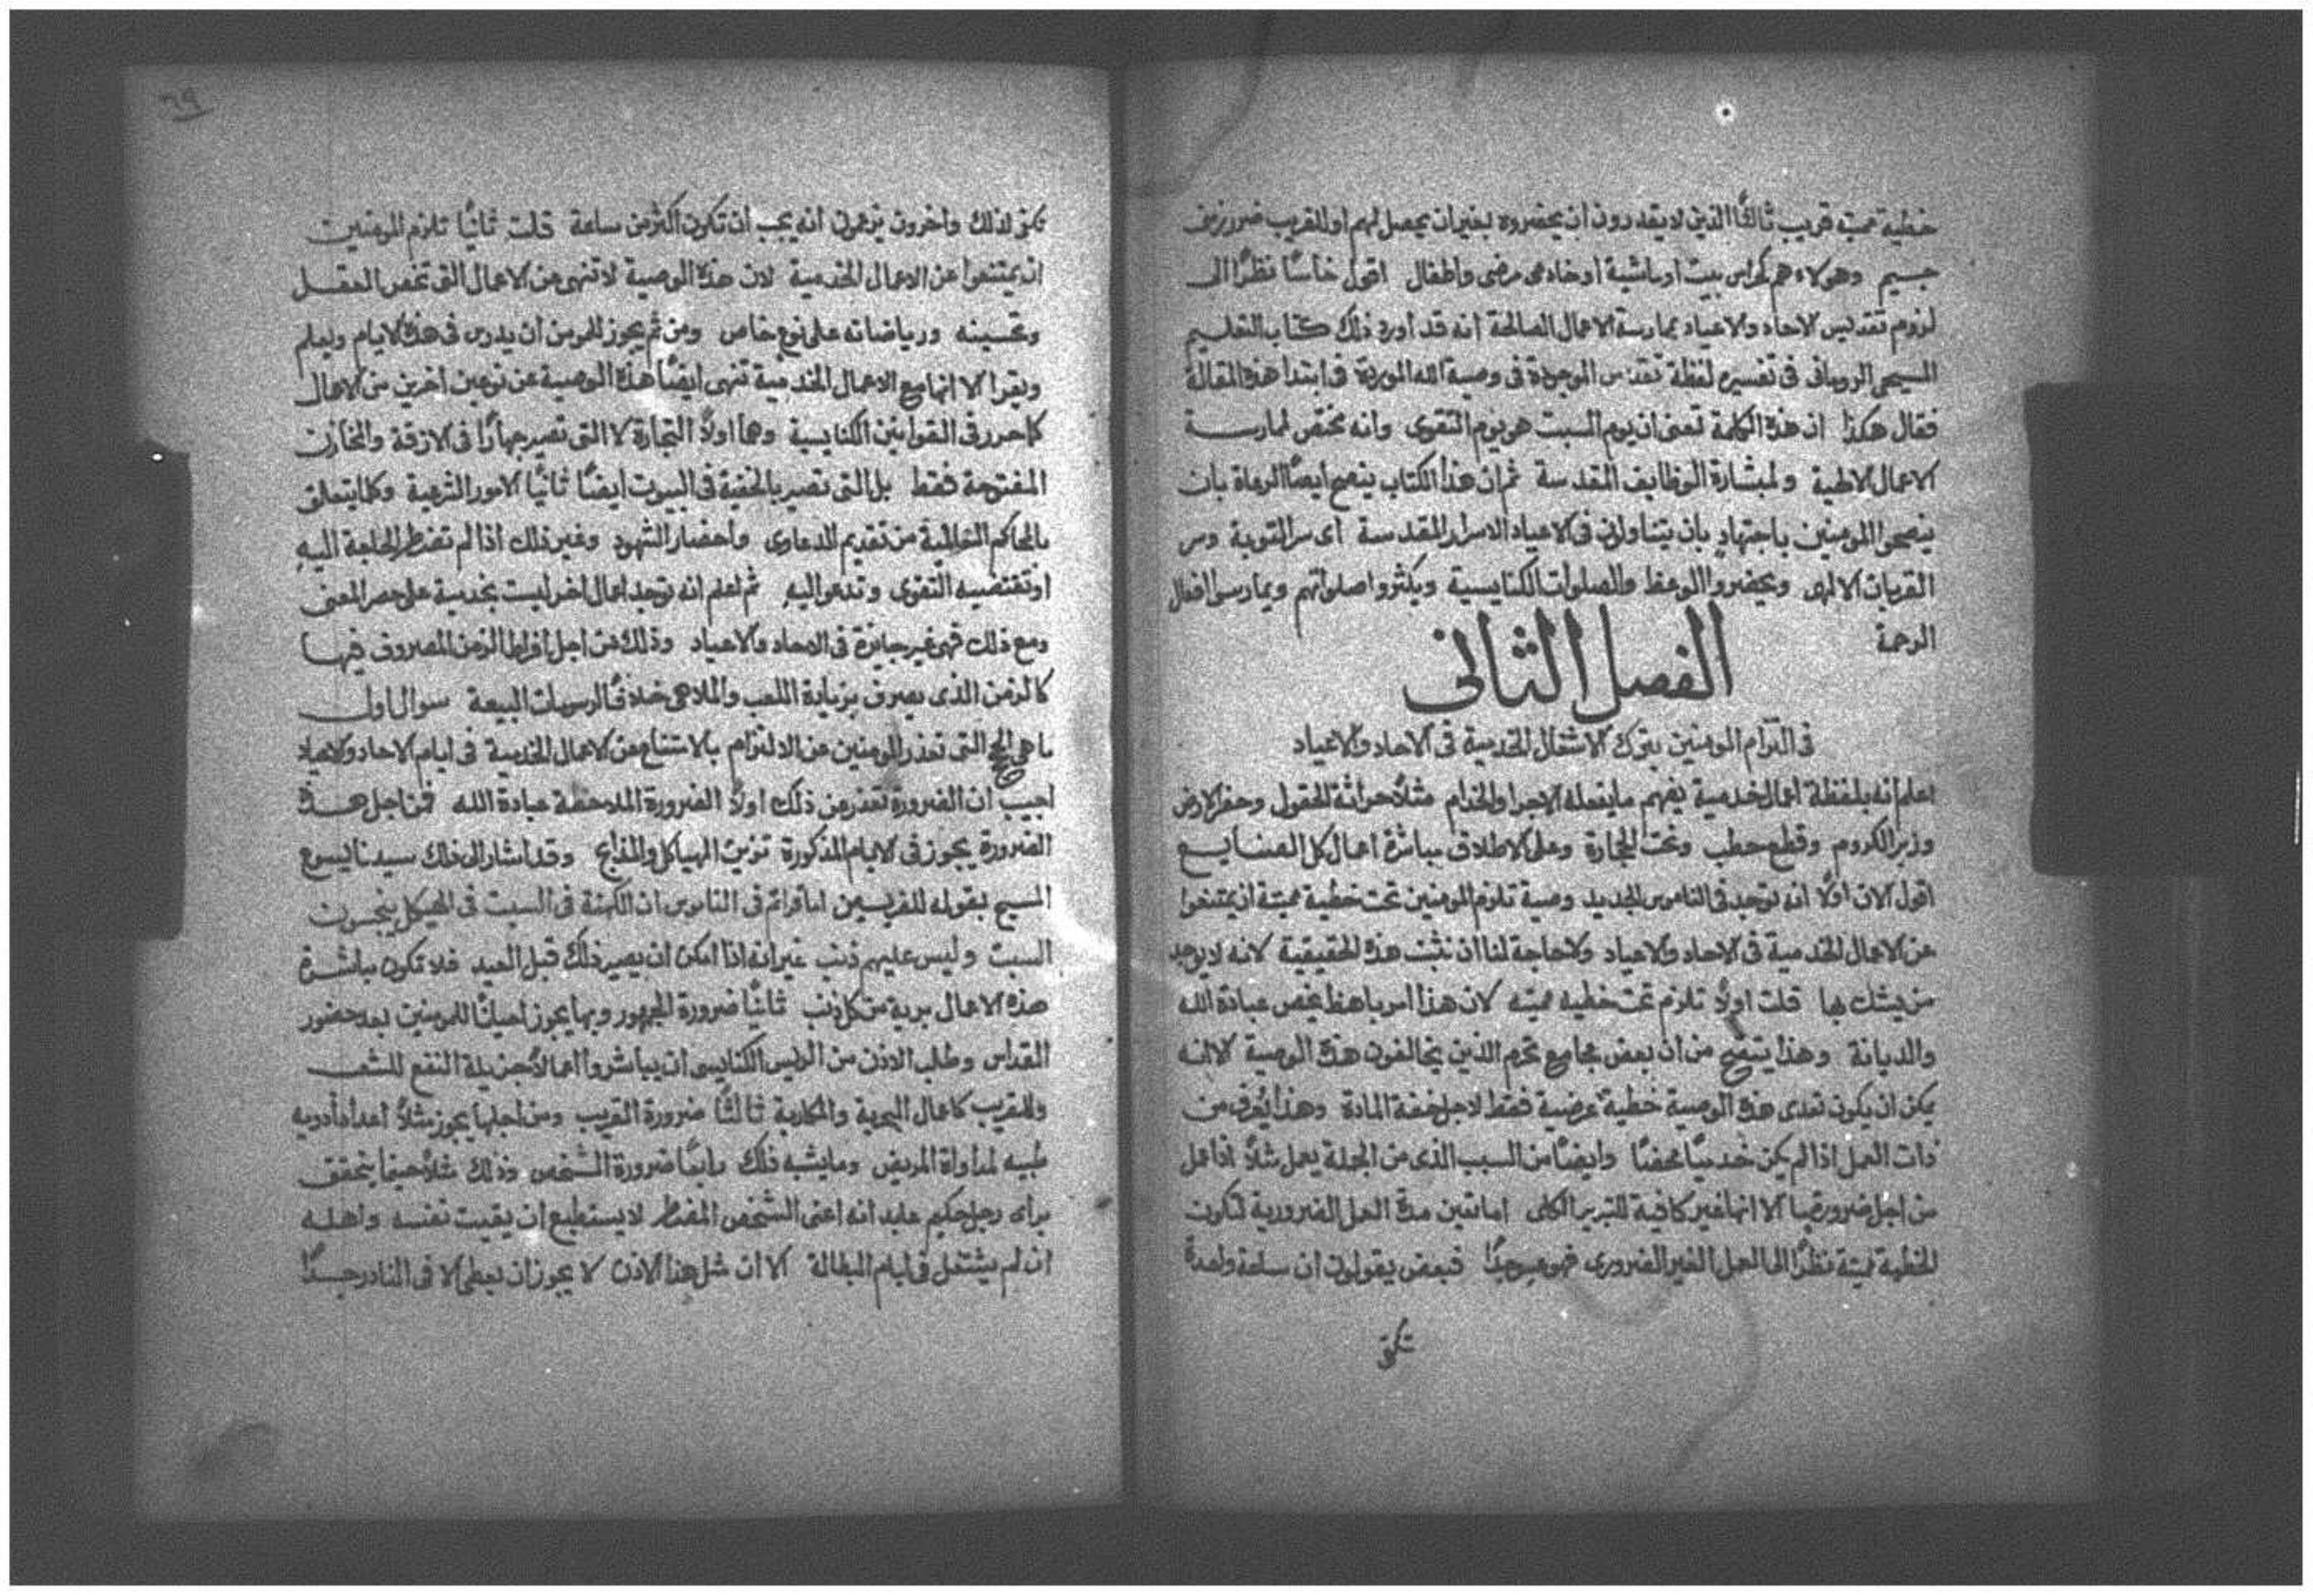 خطية مميته قريب ثالثًا الذين لا يقدرون ان يحضروه بغير ان يحصل لهم او للقريب ضرر زمني
جسيم وهولاء هم كحراس بيت او ماشية او خادمى مرضى واطفال اقول خامسًا نظرًا الى
لزوم تقديس الاحاد والاعياد بممارسة الاعمال الصالحة انه قد اورد ذلك كتاب التعليم
المسيحي الروماني فى تفسيره لفظة تقدس الموجودة فى وصية الله الموردة فى ابتدا هذه المقالة
فقال هكذا ان هذه الكلمة تعنى ان يوم السبت هو يوم التقوى وانه مختص لممارسة
الاعمال الالهية ولمباشرة الوظايف المقدسة ثم ان هذا الكتاب ينصح ايضًا الرعاة بان
ينصحوا المومنين باجتهاد بان يتناولوا فى الاعياد الاسرار المقدسة اى سر التوبة وسر
القربان الالهى ويحضروا الوعظ والصلوات الكنايسية ويكثروا صلواتهم ويمارسوا افعال
الرحمة
الفصل الثانى
فى التزام المومنين بترك الاشغال الخدمية فى الاحاد والاعياد
اعلم انه بلفظة اعمال خدمية يفهم ما يفعله الاجرا والخدام مثلًا حراثة الحقول وحفر الارض
وزبر الكروم وقطع حطب ونحت الحجارة وعلى الاطلاق مباشرة اعمال كل الصنايع
اقول الان اولًا انه توجد فى الناموس الجديد وصية تلزم المومنين تحت خطية مميتة ان يمتنعوا
عن الاعمال الخدمية فى الاحاد والاعياد ولا حاجة لنا ان نثبت هذه الحقيقية لانه لا يوجد
من يشك بها قلت اولًا تلزم تحت خطيه مميته لان هذا امر باهظ يخص عبادة الله
والديانة وهذا يتضح من ان بعض مجامع تحرم الذين يخالفون هذه الوصية لانه
يمكن ان يكون تعدى هذه الوصية خطية عرضية فقط لاجل خفة المادة وهذا يُعرف من
ذات العمل اذا لم يكن خدميًا محضًا وايضًا من السبب الذى من اجله يعمل مثلًا اذا عمل
من اجل ضرورة ما الا انها غير كافية للتبرير الكلى اما تعين مدة العمل الضرورية لتكون
الخطية مميتة نظرًا الى العمل الغير الضرورى فهو عسر جدًا فبعض يقولون ان ساعة واحدة
تكفى
٦٩
تكفى لذلك واخرون يزعمون انه يجب ان تكون اكثر من ساعة قلت ثانيًا تلزم المومنين
ان يمتنعوا عن الاعمال الخدمية لان هذه الوصية لا تنهى عن الاعمال التى تخص العقل
وتحسينه ورياضاته على نوع خاص ومن ثم يجوز للمومن ان يدرس فى هذه الايام ويعلم
ويقرا الا انها مع الاعمال الخدمية تنهى ايضًا هذه الوصية عن نوعين اخرين من الاعمال
كما حرر فى القوانين الكنايسية وهما اولًا التجارة لا التى تصير جهارًا فى الازقة والمخازن
المفتوحة فقط بل التى تصير بالخفية فى البيوت ايضًا ثانيًا الامور الشرعية وكلما يتعلق
بالمحاكم العالمية من تقديم الدعاوى واحضار الشهود وغير ذلك اذا لم تضطر الحاجة اليه
او تقتضيه التقوى وتدعو اليه ثم اعلم انه توجد اعمال اخر ليست بخدمية على حصر المعنى
ومع ذلك فهى غير جايزة فى الاحاد والاعياد وذلك من اجل افراط الزمن المصروف فيها
كالزمن الذى يصرف بزيادة اللعب والملاهى خلافًا لرسومات البيعة سوال اول
ما هى الحجج التى تعذر المومنين عن الالتزام بالامتناع عن الاعمال الخدمية فى ايام الاحاد والاعياد
اجيب ان الضرورة تعذر من ذلك اولًا الضرورة الملاحظة عبادة الله فمن اجل هذه
الضرورة يجوز فى الايام المذكورة تزيين الهياكل والمذابح وقد اشار الى ذلك سيدنا يسوع
المسيح بقوله للفريسين اما قراتم فى الناموس ان الكهنة فى السبت فى الهيكل ينجسون
السبت وليس عليهم ذنب غير انه اذا امكن ان يصير ذلك قبل العيد فلا تكون مباشرة
هذه الاعمال برية من كل ذنب ثانيًا ضرورة الجمهور وبها يجوز احيانًا للمومنين بعد حضور
القداس وطلب الاذن من الريس الكنايسى ان يباشروا اعمالًا جزيلة النفع للشعب
وللقريب كاعمال البرية والمكارية ثالثًا ضرورة القريب ومن اجلها يجوز مثلًا اعداد ادويه
طبيه لمداواة المريض وما يشبه ذلك رابعًا ضرورة الشخص وذلك مثلًا حينما يتحقق
براى رجل حكيم عابد انه اعنى الشخص المضطر لا يستطيع ان يقيت نفسه واهله
ان لم يشتغل فى ايام البطالة الا ان مثل هذا الاذن لا يجوز ان يعطى الا فى النادر جدًا